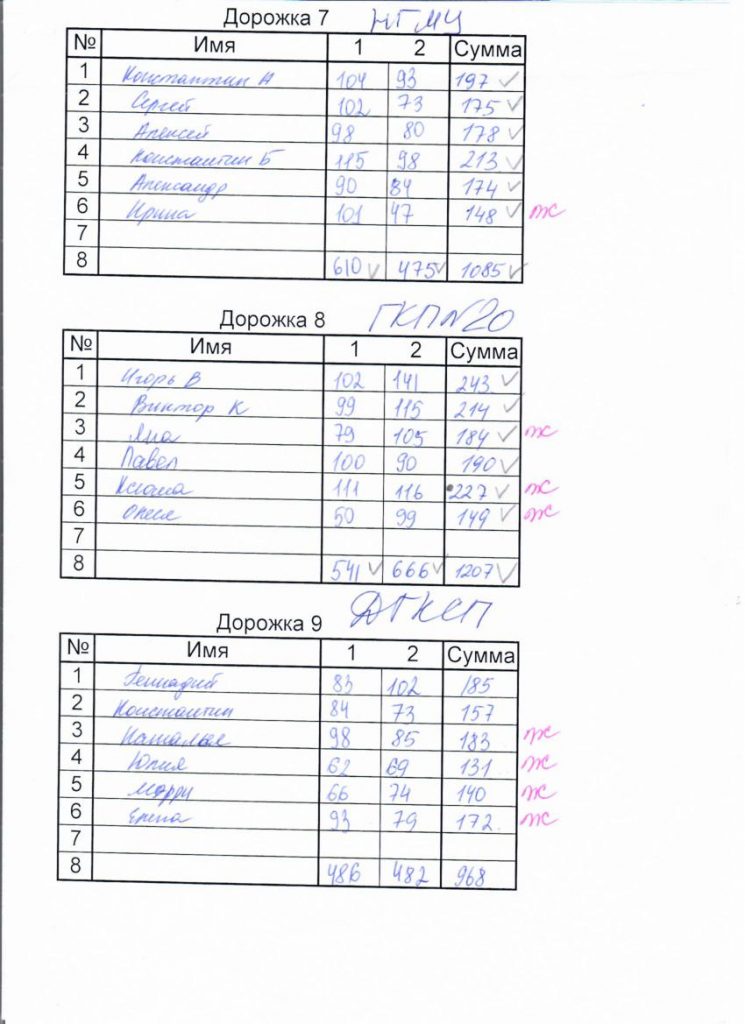 Дорожка 7 НГМЦ
№ Имя 1 2 Сумма
1 Константин А 104 93 197 ✓
2 Сергей 102 73 175 ✓
3 Алексей 98 80 178 ✓
4 Константин Б 115 98 213 ✓
5 Александр 90 84 174 ✓
6 Ирина 101 47 148 ✓ ж
7
8 610 ✓ 475 ✓ 1085 ✓
Дорожка 8 ГКП№20
№ Имя 1 2 Сумма
1 Игорь В 102 141 243 ✓
2 Виктор К 99 115 214 ✓
3 Яна 79 105 184 ✓ ж
4 Павел 100 90 190 ✓
5 Ксюша 111 116 227 ✓ ж
6 Олеся 50 99 149 ✓ ж
7
8 541 ✓ 666 ✓ 1207 ✓
Дорожка 9 ДГКСП
№ Имя 1 2 Сумма
1 Геннадий 83 102 185
2 Константин 84 73 157
3 Наталья 98 85 183 ж
4 Юлия 62 69 131 ж
5 66 74 140 ж
6 Елена 93 79 172 ж
7
8 486 482 968